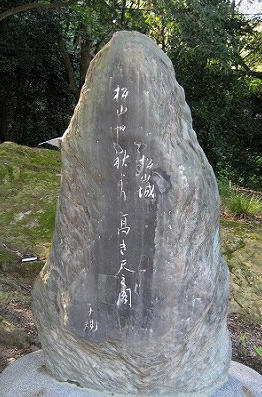 松山城
松山や秋より高き天主閣
子規